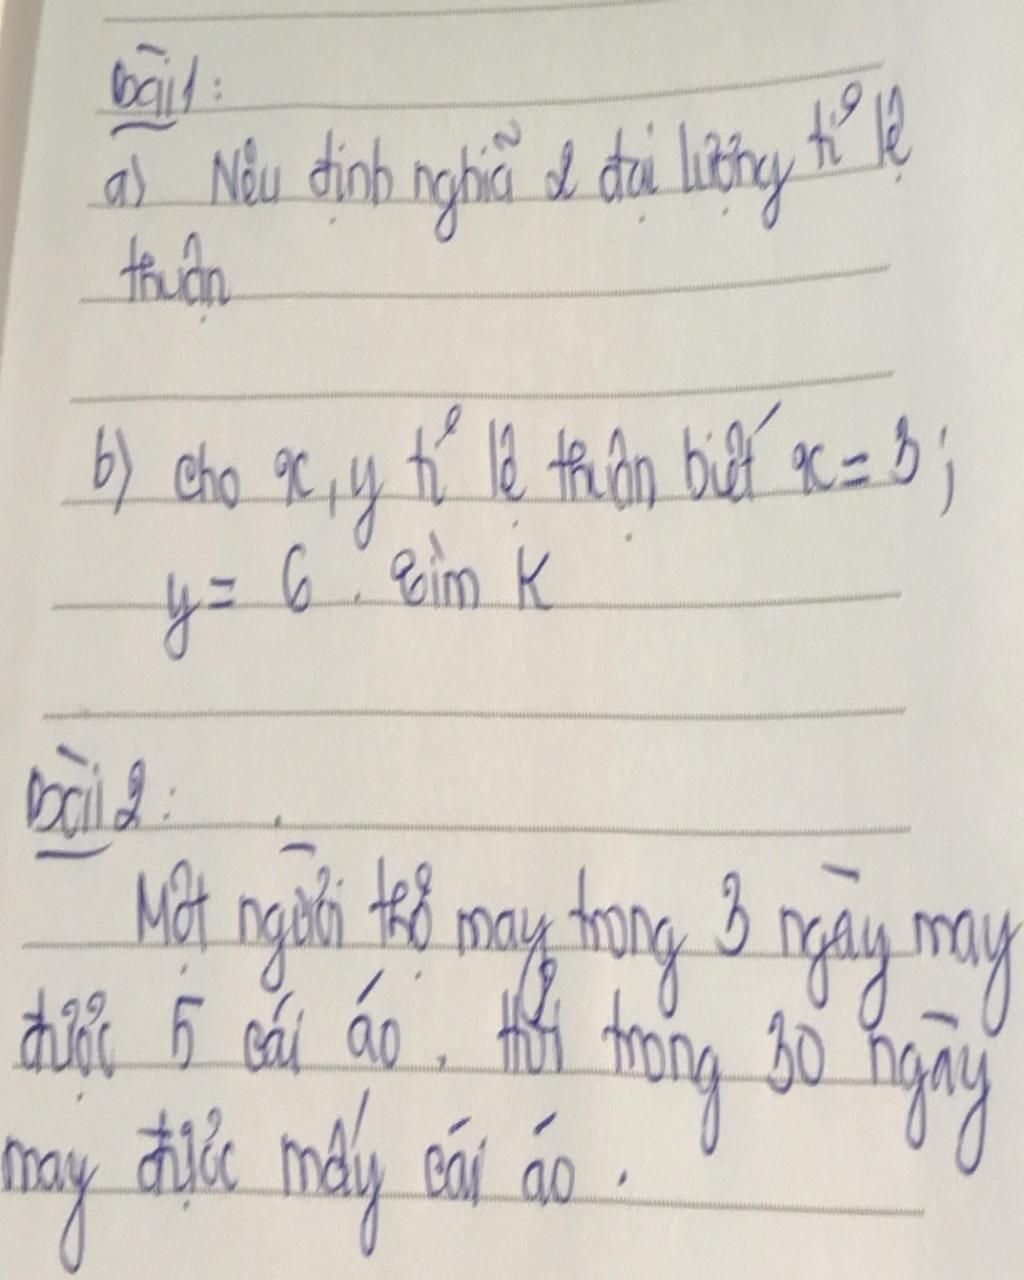 Bài 1:
a) Nêu định nghĩa 2 đại lượng tỉ lệ
thuận
b) cho x, y tỉ lệ thuận biết x = 3;
y = 6. Tìm K
Bài 2:
Một người thợ may trong 3 ngày may
được 5 cái áo. Hỏi trong 30 ngày
may được mấy cái áo.